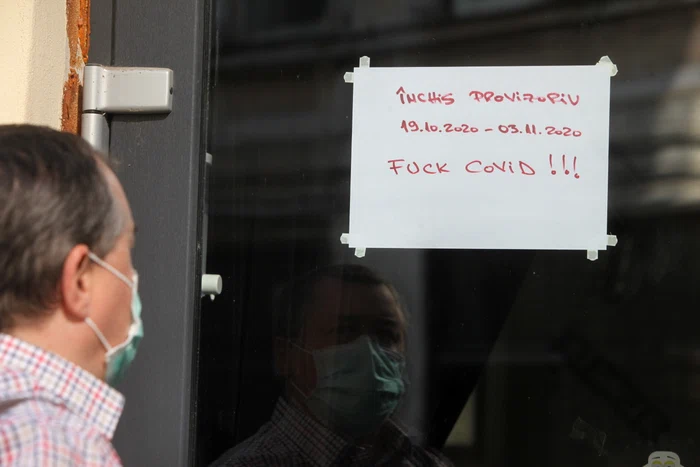 ÎNCHIS PROVIZORIU
19.10.2020 - 03.11.2020
FUCK COVID !!!